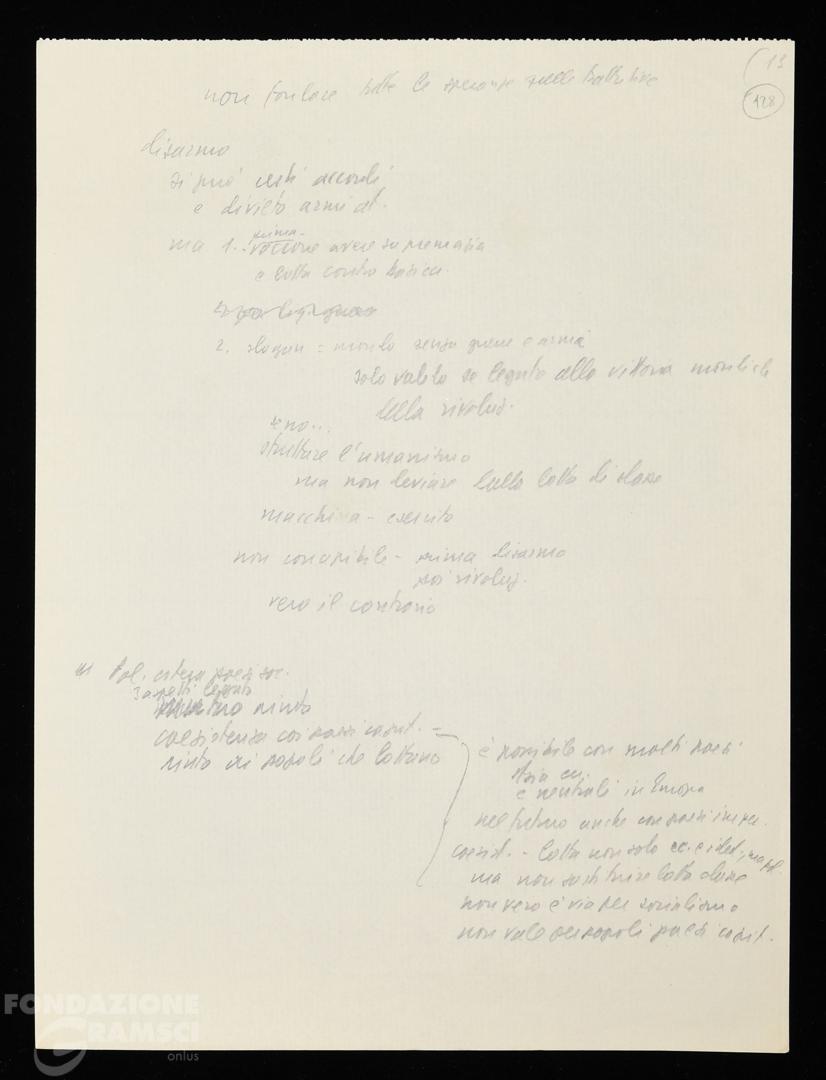 13
128
non fondare tutte le speranze sulle trattative
disarmo
si può certi accordi
e divieto armi at.
prima
ma 1. occorre avere supremazia
e lotta contro basi cu.
2. slogan = mondo senza guerre e armi
solo valido se legato alla vittoria mondiale
della rivoluz.
se no...
sfruttare l'umanismo
ma non deviare dalla lotta di classe
macchina - esercito
non concepibile - prima disarmo
poi rivoluz.
vero il contrario
Pol. estera paesi soc.
3 aspetti legati
aiuto
coesistenza coi paesi capit. -
aiuto ai popoli che lottano
è possibile con molti paesi
Asia ecc.
e neutrali in Europa
nel futuro anche con paesi imper.
coesist. - lotta non solo ec. e ideol., ma pol.
ma non sostituire lotta classe
non vero è via per socialismo
non vale per popoli paesi capit.
FONDAZIONE
GRAMSCI
onlus